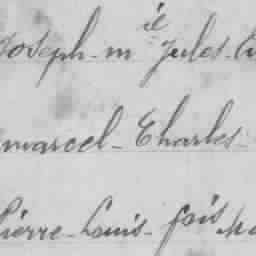 Joseph-m ie Jules-
marcel-Charles-
Pierre-Louis-fois